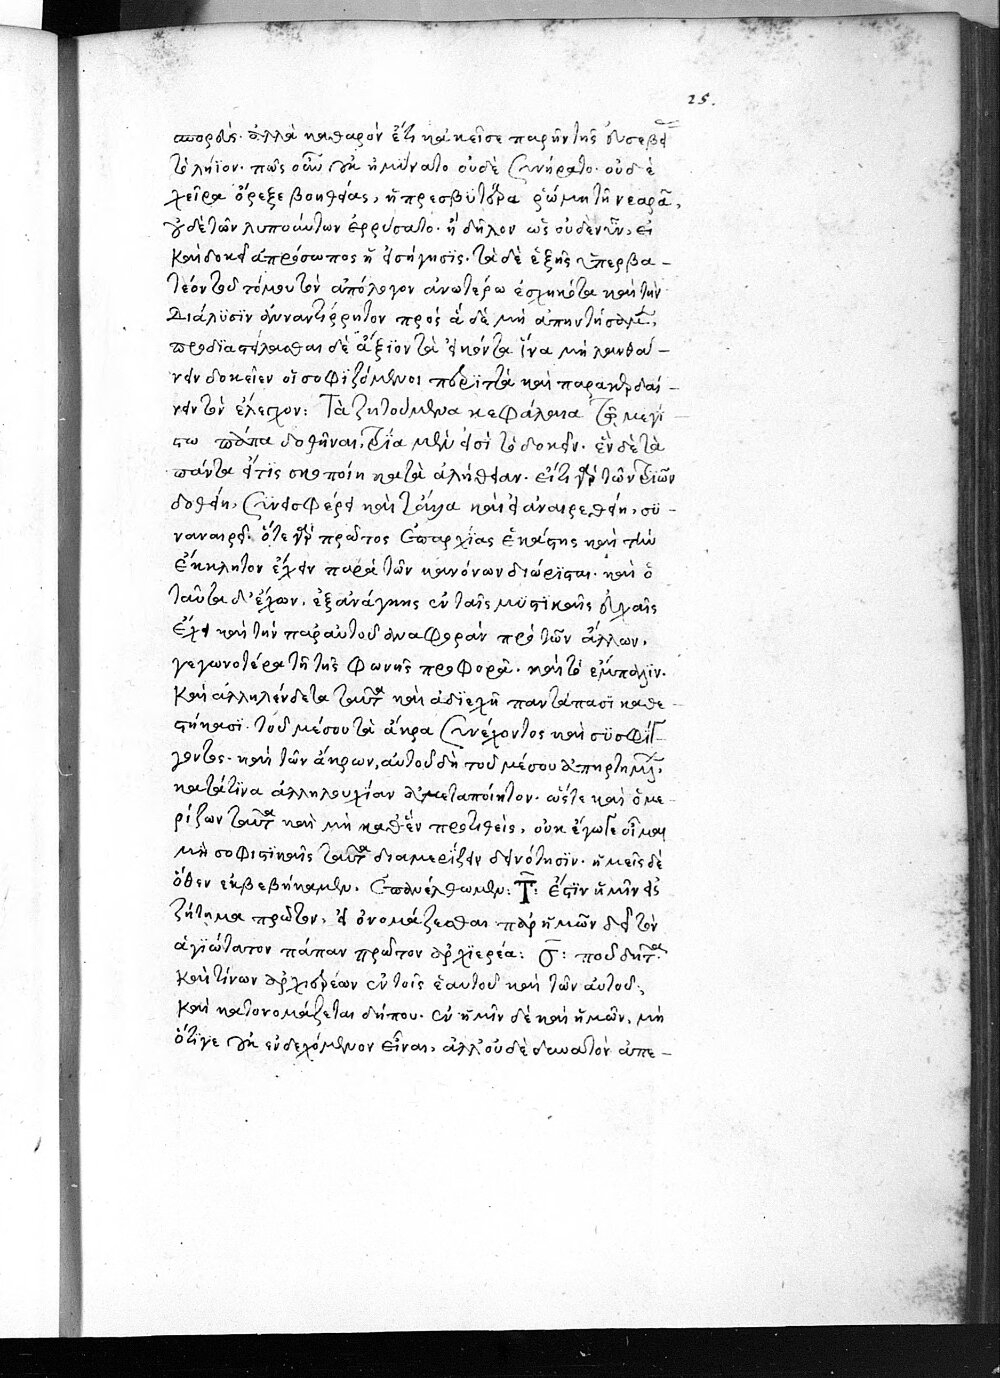 25.
σπορεύς. ἀλλὰ καθαρὸν ἔτι κἀκεῖσε παρῆν τῆς εὐσεβεί
τὸ λήϊον. πῶς οὖν οὐκ ἠμύνατο οὐδὲ συνήρατο. οὐδὲ
χεῖρα ὄρεξε βοηθείας, ἡ πρεσβυτέρα ῥώμη τῇ νεαρᾷ,
οὐδὲ τῶν λυπούντων ἐρρύσατο. ἢ δῆλον ὡς οὐδὲν ἦν, εἰ
καὶ δοκεῖ ἀπρόσωπος ἡ εἰσήγησϊς. τὰ δὲ ἑξῆς ὑπερβα –
τέον τοῦ τόμου τὸν ἀπόλογον ἀνωτέρω ἐσχηκότα καὶ τὴν
διάλϋσϊν ἀναντίρρητον πρὸς ἃ δὲ μὴ ἀπηντήσαμεν,
προδϊαστείλασθαι δὲ ἄξϊον τὰ εἰκότα ἵνα μὴ λανθά –
νειν δοκεῖεν οἱ σοφϊζόμενοι περϊττὰ καὶ παρακερδαί –
νειν τὸν ἔλεγχον: Τὰ ζητούμενα κεφάλαια τῷ μεγί
στω πάπα δοθῆναι, τρία μέν εἰσὶ τὸ δοκεῖν. ἓν δὲ τὰ
πάντα εἴ τϊς σκοποίη κατὰ ἀλήθειαν. εἴ τι γὰρ τῶν τριῶν
δοθείη, συνεισφέρει καὶ τἆλλα καὶ εἰ ἀναιρεθείη, συ –
ναναιρεῖ. ὅτε γὰρ πρῶτος ἐπαρχίας ἑκάστης καὶ τὴν
ἔκκλητον ἔχειν παρὰ τῶν κανόνων διώρϊσται. καὶ ὁ
ταῦτα δ' ἔχων, ἐξανάγκης ἐν ταῖς μυστϊκαῖς εὐχαῖς
ἔχει καὶ τὴν παραυτοῦ ἀναφορὰν πρὸ τῶν ἄλλων,
γεγωνοτέρα τῇ τῆς φωνῆς προφορᾷ. καὶ τὸ ἔμπαλϊν.
καὶ ἀλληλένδετα ταῦτα καὶ ἀδϊεχῆ παντάπασϊ καθε –
στήκασϊ. τοῦ μέσου τὰ ἄκρα συνέχοντος καὶ συσφίγ
γοντος. καὶ τῶν ἄκρων, αὐτοῦ δὴ τοῦ μέσου ἀπηρτημένων,
κατάτϊνα ἀλληλουχίαν ἀμεταποίητον. ὥστε καὶ ὁ με –
ρίζων ταῦτα καὶ μὴ καθὲν προτιθεὶς, οὐκ ἔγωγε οἶμαι
μὴ σοφιστϊκαῖς ταῦτα διαμερίζειν δεινότησϊν. ἡμεῖς δὲ
ὅθεν ἐκβεβήκαμεν. ἐπανέλθωμεν: Τ: Ἔστϊν ἡμῖν εἰς
ζήτημα πρῶτον, εἰ ὀνομάζεσθαι παρ' ἡμῶν δεῖ τὸν
ἁγϊώτατον πάπαν πρῶτον ἀρχϊερέα: ποῦ δῆτα
καὶ τίνων ἀρχιερέων ἐν τοῖς ἑαυτοῦ καὶ τῶν αὐτοῦ;
καὶ κατονομάζεται δήπου. ἐν ἡμῖν δὲ καὶ ἡμῶν, μὴ
ὅτιγε οὐκ ἐνδεχόμενον εἶναι, ἀλλ' οὐδὲ δυνατὸν ἀπε –